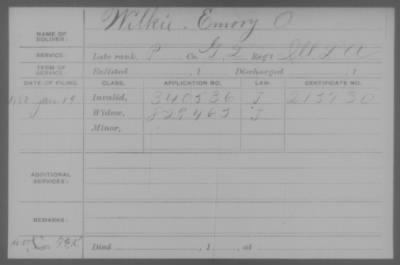 NAME OF SOLDIER: Wilkie, Emory O
SERVICE: Late rank, P Co. G Reg't Ill
TERM OF SERVICE: Enlisted , 1 Discharged , 1
DATE OF FILING. CLASS. APPLICATION NO. LAW. CERTIFICATE NO.
Jan 19 Invalid, 340536 J 215730
Widow, 829465 J
Minor,
ADDITIONAL SERVICES:
REMARKS:
Died , 1 , at